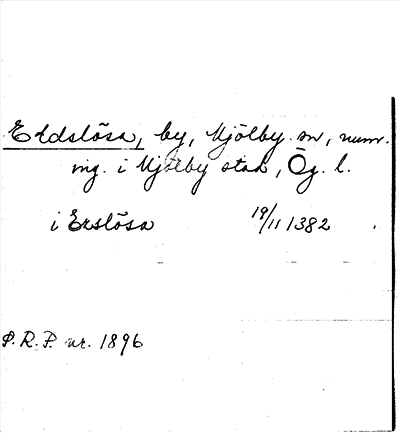 Eldslösa, by, Mjölby sn, numr.
ing. i Mjölby stad, Ög. l.
i Erslösa 19/11 1382
P. R. P. nr. 1896